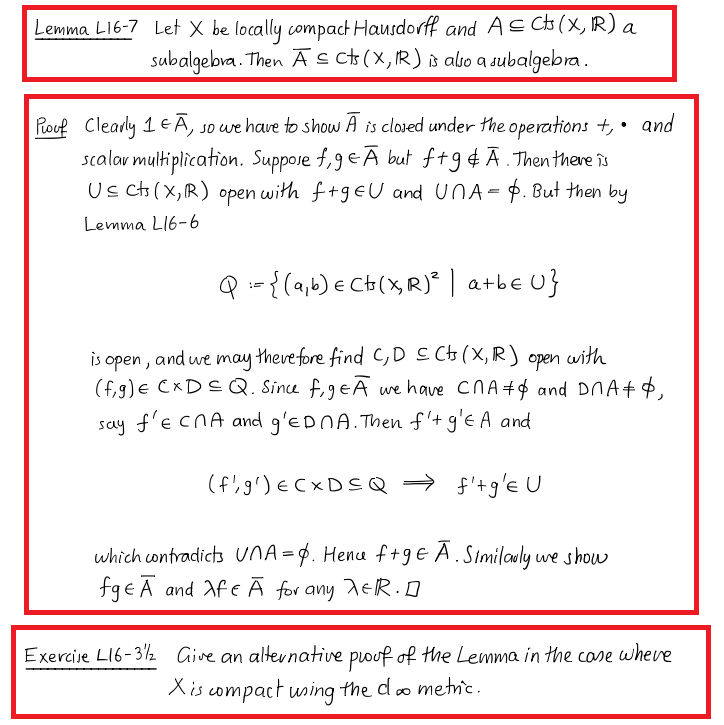 Lemma L16-7 Let X be locally compact Hausdorff and A ⊆ Cts(X, ℝ) a
subalgebra. Then Ā ⊆ Cts(X, ℝ) is also a subalgebra.
Proof Clearly 1 ∈ Ā, so we have to show Ā is closed under the operations +, • and
scalar multiplication. Suppose f, g ∈ Ā but f+g ∉ Ā. Then there is
U ⊆ Cts(X, ℝ) open with f+g ∈ U and U∩A = ∅. But then by
Lemma L16-6
Q := {(a,b) ∈ Cts(X, ℝ)² | a+b ∈ U}
is open, and we may therefore find C, D ⊆ Cts(X, ℝ) open with
(f,g) ∈ C×D ⊆ Q. Since f, g ∈ Ā we have C∩A ≠ ∅ and D∩A ≠ ∅,
say f' ∈ C∩A and g' ∈ D∩A. Then f'+g' ∈ A and
(f', g') ∈ C×D ⊆ Q ⟹ f'+g' ∈ U
which contradicts U∩A = ∅. Hence f+g ∈ Ā. Similarly we show
fg ∈ Ā and λf ∈ Ā for any λ∈ℝ. □
Exercise L16-3½ Give an alternative proof of the Lemma in the case where
X is compact using the d∞ metric.